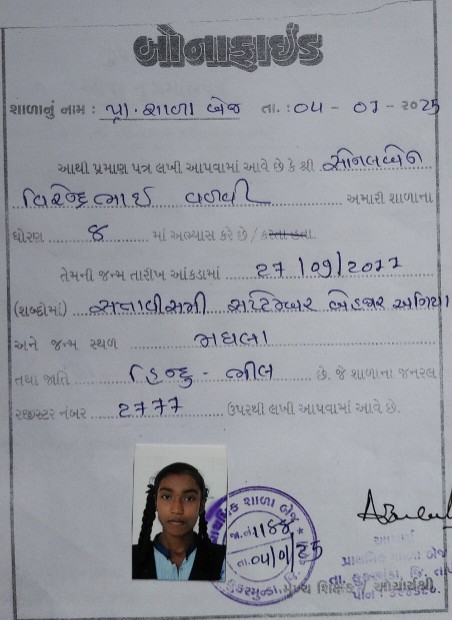 બોનાફાઈડ
શાળાનું નામ : પ્રા. શાળા બેજ તા. : ૦૫ - ૦૧ - ૨૦૨5
આથી પ્રમાણ પત્ર લખી આપવામાં આવે છે કે શ્રી સોનલબેન
વિરેન્દ્રભાઈ વળવી અમારી શાળાના
ધોરણ ૪ માં અભ્યાસ કરે છે / કરતા હતા.
તેમની જન્મ તારીખ આંકડામાં ૨૭ /૦૯/૨૦૧૧
(શબ્દોમાં) સત્તાવીસમી સપ્ટેમ્બર બેહજાર અગિયાર
અને જન્મ સ્થળ
તથા જાતિ હિન્દુ - ભીલ છે. જે શાળાના જનરલ
રજીસ્ટર નંબર ૨૧૧૧ ઉપરથી લખી આપવામાં આવે છે.
પ્રાથમિક શાળા બેજ
જા.નં.
તા.
કુકરમુંડા
આચાર્ય
પ્રાથમિક શાળા બેજ
તા. કુકરમુંડા, જિ. તાપી
મુખ્ય શિક્ષક / આચાર્યશ્રી